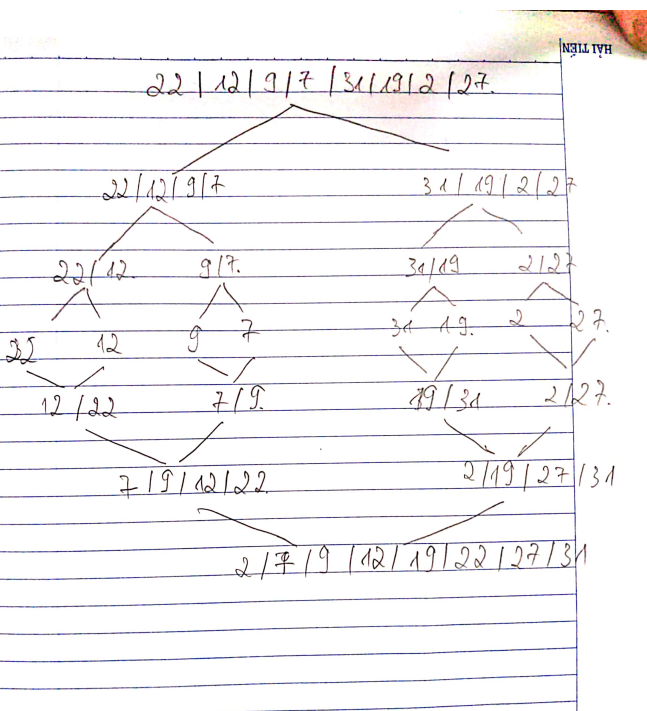 HẢI TIẾN
22 / 12 / 9 / 7 / 31 / 19 / 2 / 27.
22 / 12 / 9 / 7 31 / 19 / 2 / 27
22 / 12. 9 / 7. 31 / 19 2 / 27
22 12 9 7 31 19. 2 27.
12 / 22 7 / 9. 19 / 31 2 / 27.
7 / 9 / 12 / 22. 2 / 19 / 27 / 31
2 / 7 / 9 / 12 / 19 / 22 / 27 / 31